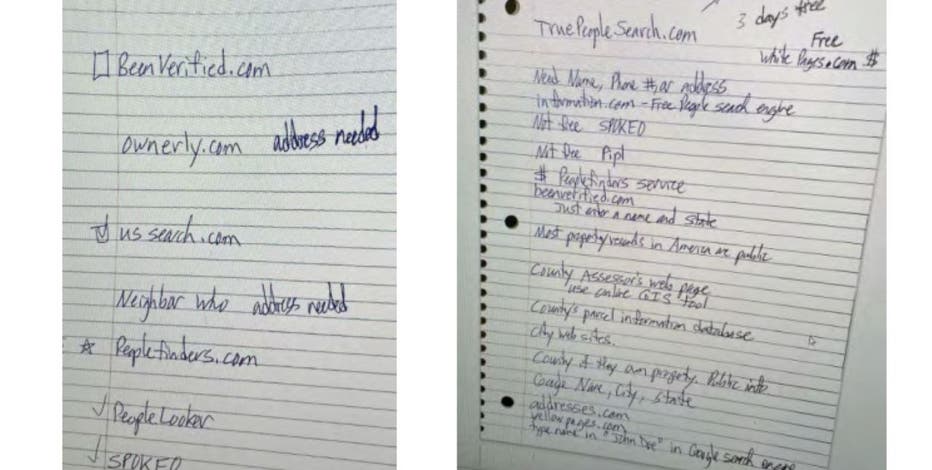 BeenVerified.com
ownerly.com address needed
us search.com
Neighbor who address needed
Peoplefinders.com
PeopleLooker
SPOKEO
3 days free
TruePeopleSearch.com
Free
White Pages.com $
Need Name, Phone #, or address
information.com - Free People search engine
Not free SPOKEO
Not free Pipl
$ Peoplefinders service
beenverified.com
Just enter a name and state
Most property records in America are public
County Assessor's web page
use online GIS tool
County's parcel information database
city web sites.
County if they own property. Public info
Google Name, City, State
addresses.com
yellowpages.com
type name in "John Doe" in Google search engine